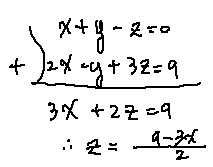 x+y-z=0
+ ) 2x-y+3z=9
3x+2z=9
∴ z = \frac{9-3x}{2}